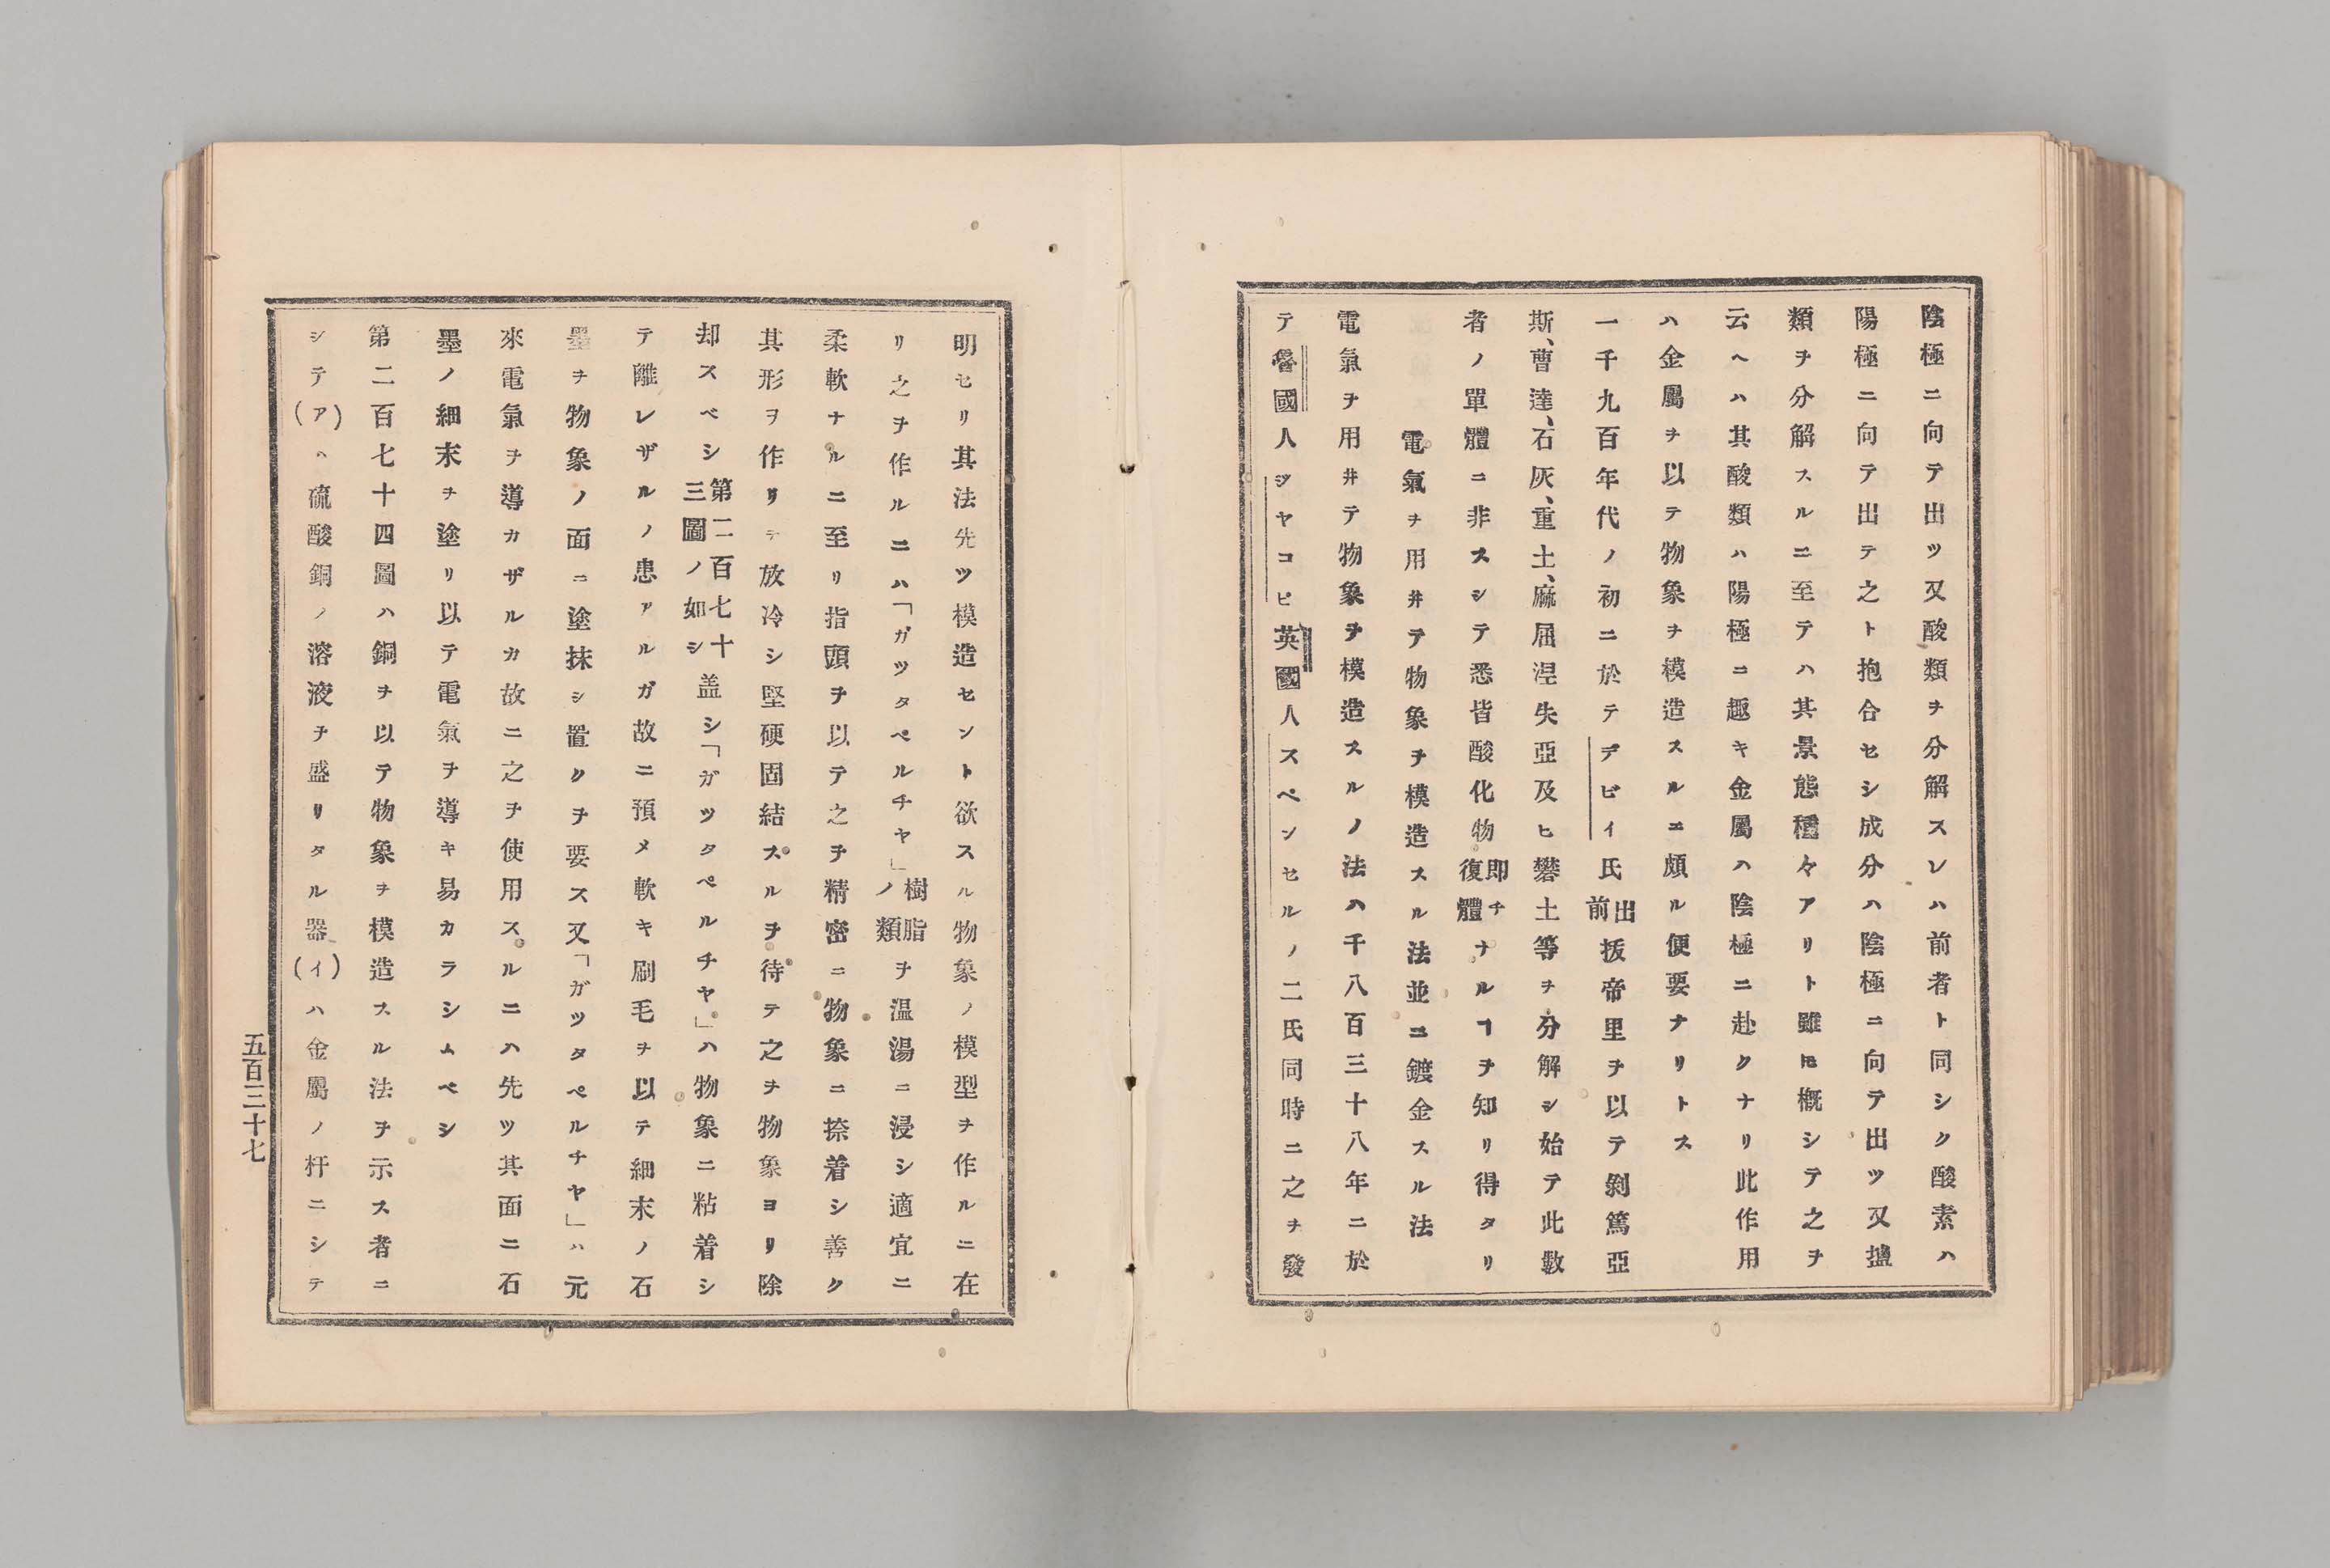 陰極ニ向テ出ツ又酸類ヲ分解スレハ前者ト同シク酸素ハ
陽極ニ向テ出テ之ト抱合セシ成分ハ陰極ニ向テ出ツ又鹽
類ヲ分解スルニ至テハ其景態種々アリト雖𪜈概シテ之ヲ
云ヘハ其酸類ハ陽極ニ趣キ金屬ハ陰極ニ赴クナリ此作用
ハ金屬ヲ以テ物象ヲ模造スルニ頗ル便要ナリトス
一千九百年代ノ初ニ於テデビイ氏前出拔帝里ヲ以テ剝篤亞
斯、曹達、石灰、重土、麻屈涅失亞及ヒ礬土等ヲ分解シ始テ此數
者ノ單體ニ非スシテ悉皆酸化物即チ復體ナルヿヲ知リ得タリ
電氣ヲ用井テ物象ヲ模造スル法並ニ鍍金スル法
電氣ヲ用井テ物象ヲ模造スルノ法ハ千八百三十八年ニ於
テ魯國人ジヤコビ英國人スペンセルノ二氏同時ニ之ヲ發
明セリ其法先ツ模造セント欲スル物象ノ模型ヲ作ルニ在
リ之ヲ作ルニハ「ガツタペルチヤ」樹脂ノ類ヲ温湯ニ浸シ適宜ニ
柔軟ナルニ至リ指頭ヲ以テ之ヲ精密ニ物象ニ捺着シ善ク
其形ヲ作リテ放冷シ堅硬固結スルヲ待テ之ヲ物象ヨリ除
却スベシ第二百七十三圖ノ如シ盖シ「ガツタペルチヤ」ハ物象ニ粘着シ
テ離レザルノ患アルガ故ニ預メ軟キ刷毛ヲ以テ細末ノ石
墨ヲ物象ノ面ニ塗抹シ置クヲ要ス又「ガツタペルチヤ」ハ元
來電氣ヲ導カザルカ故ニ之ヲ使用スルニハ先ツ其面ニ石
墨ノ細末ヲ塗リ以テ電氣ヲ導キ易カラシムベシ
第二百七十四圖ハ銅ヲ以テ物象ヲ模造スル法ヲ示ス者ニ
シテ(ア)ハ硫酸銅ノ溶液ヲ盛リタル器(イ)ハ金屬ノ杆ニシテ
五百三十七